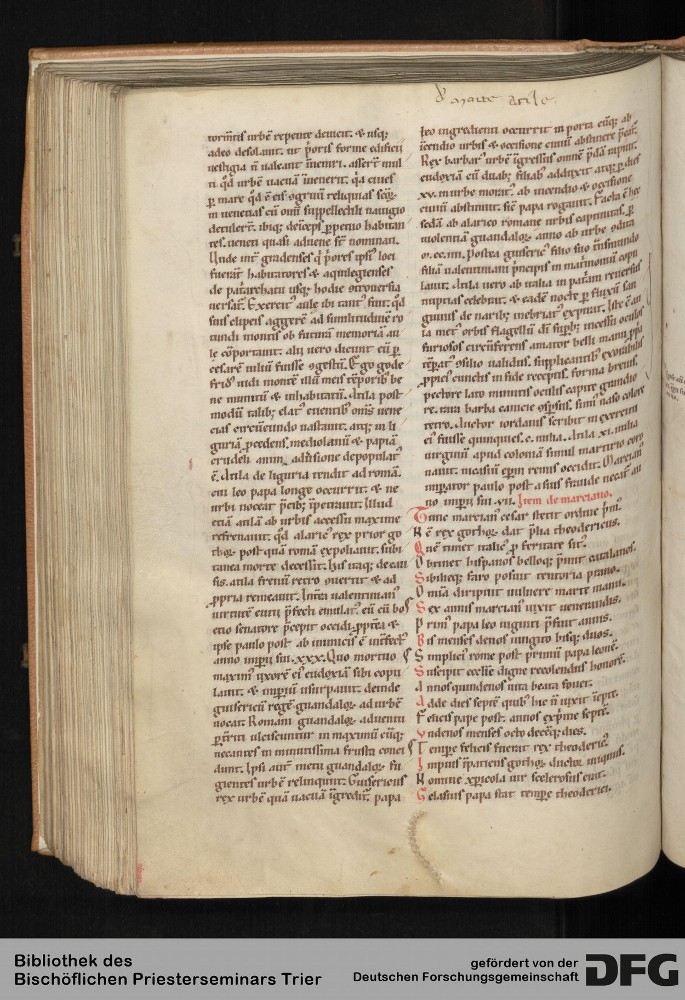 de morte atile
tormtis urbē repente deuicit. & usq;
adeo desolauit. ut pͥoris forme edificii
uestigia ñ ualeant inueniri. asserēt
qđ urbē uacuā inuenerit. qͥa ciues
ꝑ mare qđ ē eis reliquias scōꝝ
in uenecias cū om̄i suppellectili nauigio
detulerēt. ibiq; deīceps ꝑpetuo habitan
tes. ueneti quasi aduene st̄ nominati.
Unde int̄ gradenses q̄ pͥores ipsiꝰ loci
fuerāt habitatores & aquilegienses
de patͥarchatu usq; hodie ꝯtrouersia
uersat᷑. Exercitꝰ aūt ibi tantꝰ fuit. qđ
suis clipeis aggerē ad similitudinē ro
tundi montis ob futurā memoriā
le cōportauit. alii uero dicunt eū ꝑ
cesarē iuliū fuisse ꝯgestū. Ego gode
fridꝰ uidi montē illū meis tēporibꝰ be
ne munitū & inhabitatū. Atila post
modū talibꝰ elatꝰ euentibꝰ om̄s uene
cias circūeundo uastauit. atq; in li
guriā ꝓcedens. mediolanū & papiā
crudeli depopulatꝰ
ē. Atila de liguria tendit ad romā.
cui leo papa longe occurrit. & ne
urbi noceat pͥcibꝰ īpetrauit. Illud
etiā atilā ab urbis accessu maxime
refrenauit. qđ alaricꝰ rex prior go
thoꝝ post quā romā expoliauit. subi
tanea morte decessit. his itaq; de cau
sis. atila frenū retro ꝯuertit & ad
ꝓpria remeauit. Int̄ea ualentinianꝰ
uirtutē pͥfecti emulatꝰ. eū cū bo
etio senatore pͥcepit occidi. ꝓpt̄ea &
ipse paulo post ab inimicis ē int̄fectꝰ
anno impii sui. xxx. Quo mortuo
maximꝰ uxorē eiꝰ eudoxiā sibi copu
lauit. & impiū usurpauit. deinde
guisericū regē guandaloꝝ ad urbē
uocat. Romani guandaloꝝ aduentu
ꝑt̄riti ulciscuntur in maximū eūq;
necantes in minutissima frusta conci
dunt. Ipsi aūt metu guandaloꝝ fu
gientes urbē relinqunt. Guisericus
rex urbē quā uacuā īgredit᷑. papa
leo ingredienti occurrit in porta eūq; ab
incendio urbis & occisione ciuiū abstinere
Rex barbarꝰ urbē īgressus omnē pͥdā rapuit.
eudoxiā cū duabꝰ filiabꝰ adduxit atq; ꝑ dies
xv. in urbe moratꝰ. ab incendio & occisione
ciuiū abstinuit. sic̄ papa rogauit. Facta ē hec
sedā ab alarico romane urbis captiuitas. ꝑ
uiolentiā guandaloꝝ. anno ab urbe ꝯdita
Postea guisericꝰ filio suo
filiā ualentiniani pͥncipis in matͥmoniū copu
lauit. Atila uero ab italia in patͥam reuersus
nuptias celebrat. & eadē nocte ꝑ fluxū san
guinis de naribꝰ inebriatꝰ expirat. Iste ē
orbis flagellū dī suꝑbꝰ incessu oculos
furiosos circūferens. amator belli manu ꝓpͥa
tēperatꝰ ꝯsilio ualidus. supplicantibꝰ exorabilis
ꝓpiciꝰ cunctis in fide receptis. forma breuis.
pectore lato minutis oculis capite grandio
re. rara barba canicie ꝯspersus. simo naso colore
tetro. Auctor iordanis scribit in exercitu
eiꝰ fuisse quinquies. c. milia. Atila xi. milia
uirginū apud coloniā simul martirio coro
nauit. nicasiū ep̄m remis occidit. Marcianꝰ
impator paulo post a suis fraude necatꝰ
no impii sui. vii. Item de marciano.
Tunc marcianꝰ cesar stetit ordine pͥmꝰ.
R ē rex gothoꝝ dat pͥlia theodericus.
Quē timet italicꝰ ꝓ feritate sitꝰ.
Obtinet hispanos belloq; pͥmit catalanos.
Sibiliceq; faro posuit tentoria prauo.
Omīa diripiunt uulnere marte manu.
Sex annis marcianꝰ uixit uenerandis.
Primꝰ papa leo uiginti pͥfuit annis.
Bis menses denos iungito bisq; duos.
Simplici rome post primū papa leonē.
Suscipit eccliē digne recolendus honorē.
Annos quindenos uita beata fouet.
Adde dies septē quibꝰ hic ñ uixit ineptꝰ.
Felicis pape post annos exprime septē.
Vndenos menses octo deceq; dies.
Tempe felicis fuerat rex theodericꝰ.
Impius īpatiens gothoꝝ ductor iniquus.
Nomine xpͥicola uir scelerosus erat.
Gelasius papa stat tempe theoderici.
Bibliothek des
Bischöflichen Priesterseminars Trier
gefördert von der
Deutschen Forschungsgemeinschaft
DFG